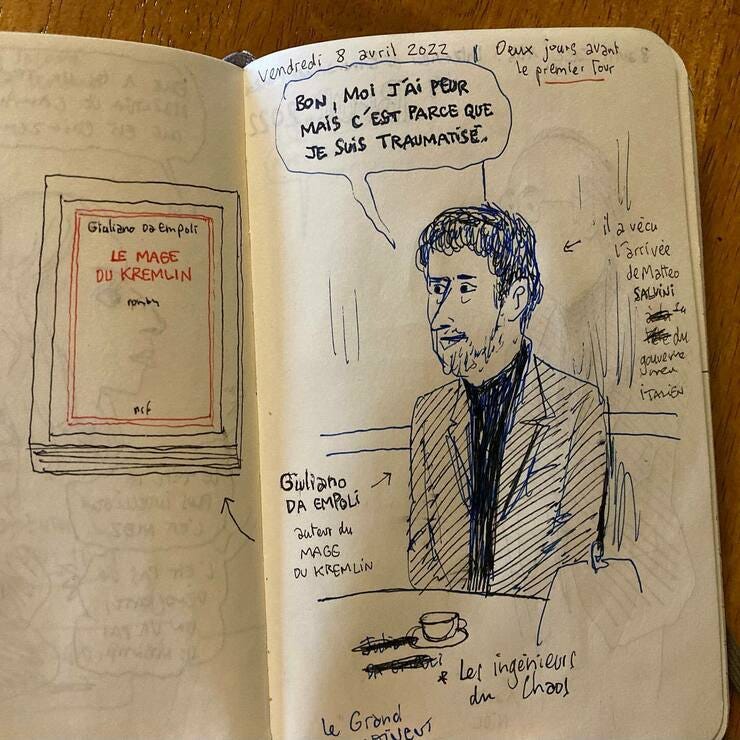 Giuliano Da Empoli
LE MAGE
DU KREMLIN
roman
nrf
Vendredi 8 avril 2022 | Deux jours avant
le premier Tour
BON, MOI J'AI PEUR
MAIS C'EST PARCE QUE
JE SUIS TRAUMATISÉ.
il a vécu
l'arrivée
de Matteo
SALVINI
du
gouverne
men
ITALIEN
Giuliano
DA EMPOLI
auteur du
MAGE
DU KREMLIN
* Les ingénieurs
du Chaos
le Grand